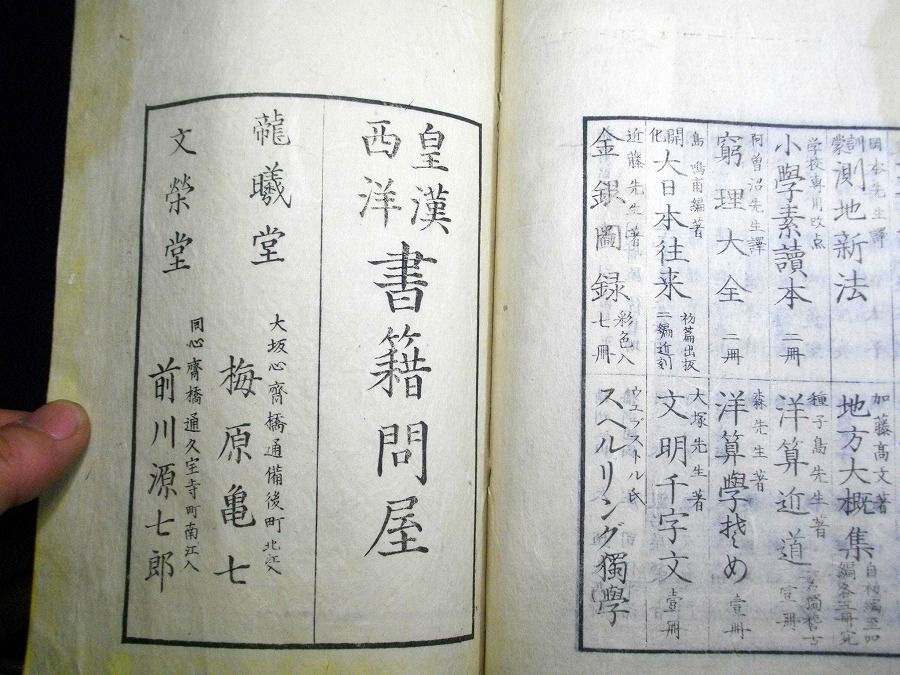 岡本先生譯
訓蒙測地新法
加藤高文著
地方大概集
自初編至四編各五冊完
学校専用改点
小學素讀本 二冊
種子島先生著
洋算近道 壹冊
阿曽沼先生譯
窮理大全 二冊
森先生著
洋算學初め 壹冊
島鳴甫編著
開化大日本往来
初篇出板
二編近刻
大塚先生著
文明千字文 壹冊
近藤先生著
金銀圖録 彩色入七冊
ウエブストル氏
スヘルリング獨學
皇漢
西洋
書籍問屋
龍曦堂
大坂心齋橋通備後町北江入
梅原亀七
文榮堂
同心齋橋通久宝寺町南江入
前川源七郎